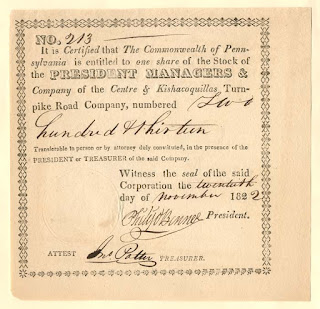 NO. 213
It is Certified that The Commonwealth of Penn-
sylvania is entitled to one share of the Stock of
the PRESIDENT MANAGERS &
Company of the Centre & Kishacoquillas Turn-
pike Road Company, numbered Two
hundred & thirteen
Transferable in person or by attorney duly constituted, in the presence of the
PRESIDENT or TREASURER of the said Company.
Witness the seal of the said
Corporation the twentieth
day of november 1822
Philip Benner President.
ATTEST Jno Potter TREASURER.